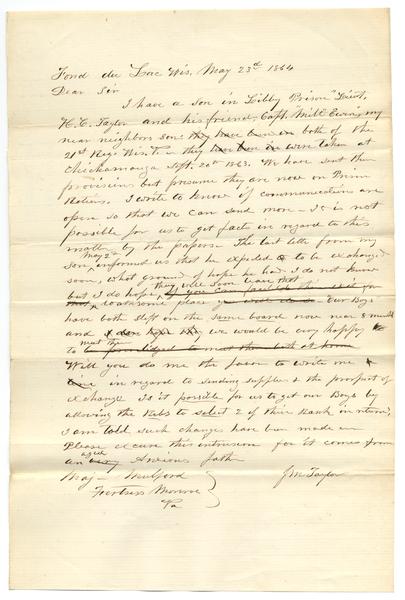 Fond du Lac Wis, May 23d 1864
Dear Sir
I have a son in Libby Prison "Lieut,
H. C. Taylor and his friend, Capt. Milt Ewing, my
near neighbors son: they have been in both of the
21st Regt Wis. they were taken at
Chickamauga Sept. 20th 1863. We have sent them
provisions but presume they are now on Prison
Rations. I write to know if communications are
open so that we can send more – It is not
possible for us to get facts in regard to this
matter by the papers. The last letter from my
son May 2d informed us that he expected to be exchanged
soon, what ground of hope he had I do not know
but I do hope they will soon leave that
loathsome place Our Boys
have both slept on the same board now near 8 months
and we would be very happy
to meet them
Will you do me the favor to write me
in regard to sending supplies & the prospect of
exchange Is it possible for us to get our Boys by
allowing the Rebs to select 2 of their Rank in return,
I am told such changes have been made
Please excuse this intrusion for it comes from
an aged Anxious father
Maj – Mulford J M Taylor
Fortress Monroe
Va